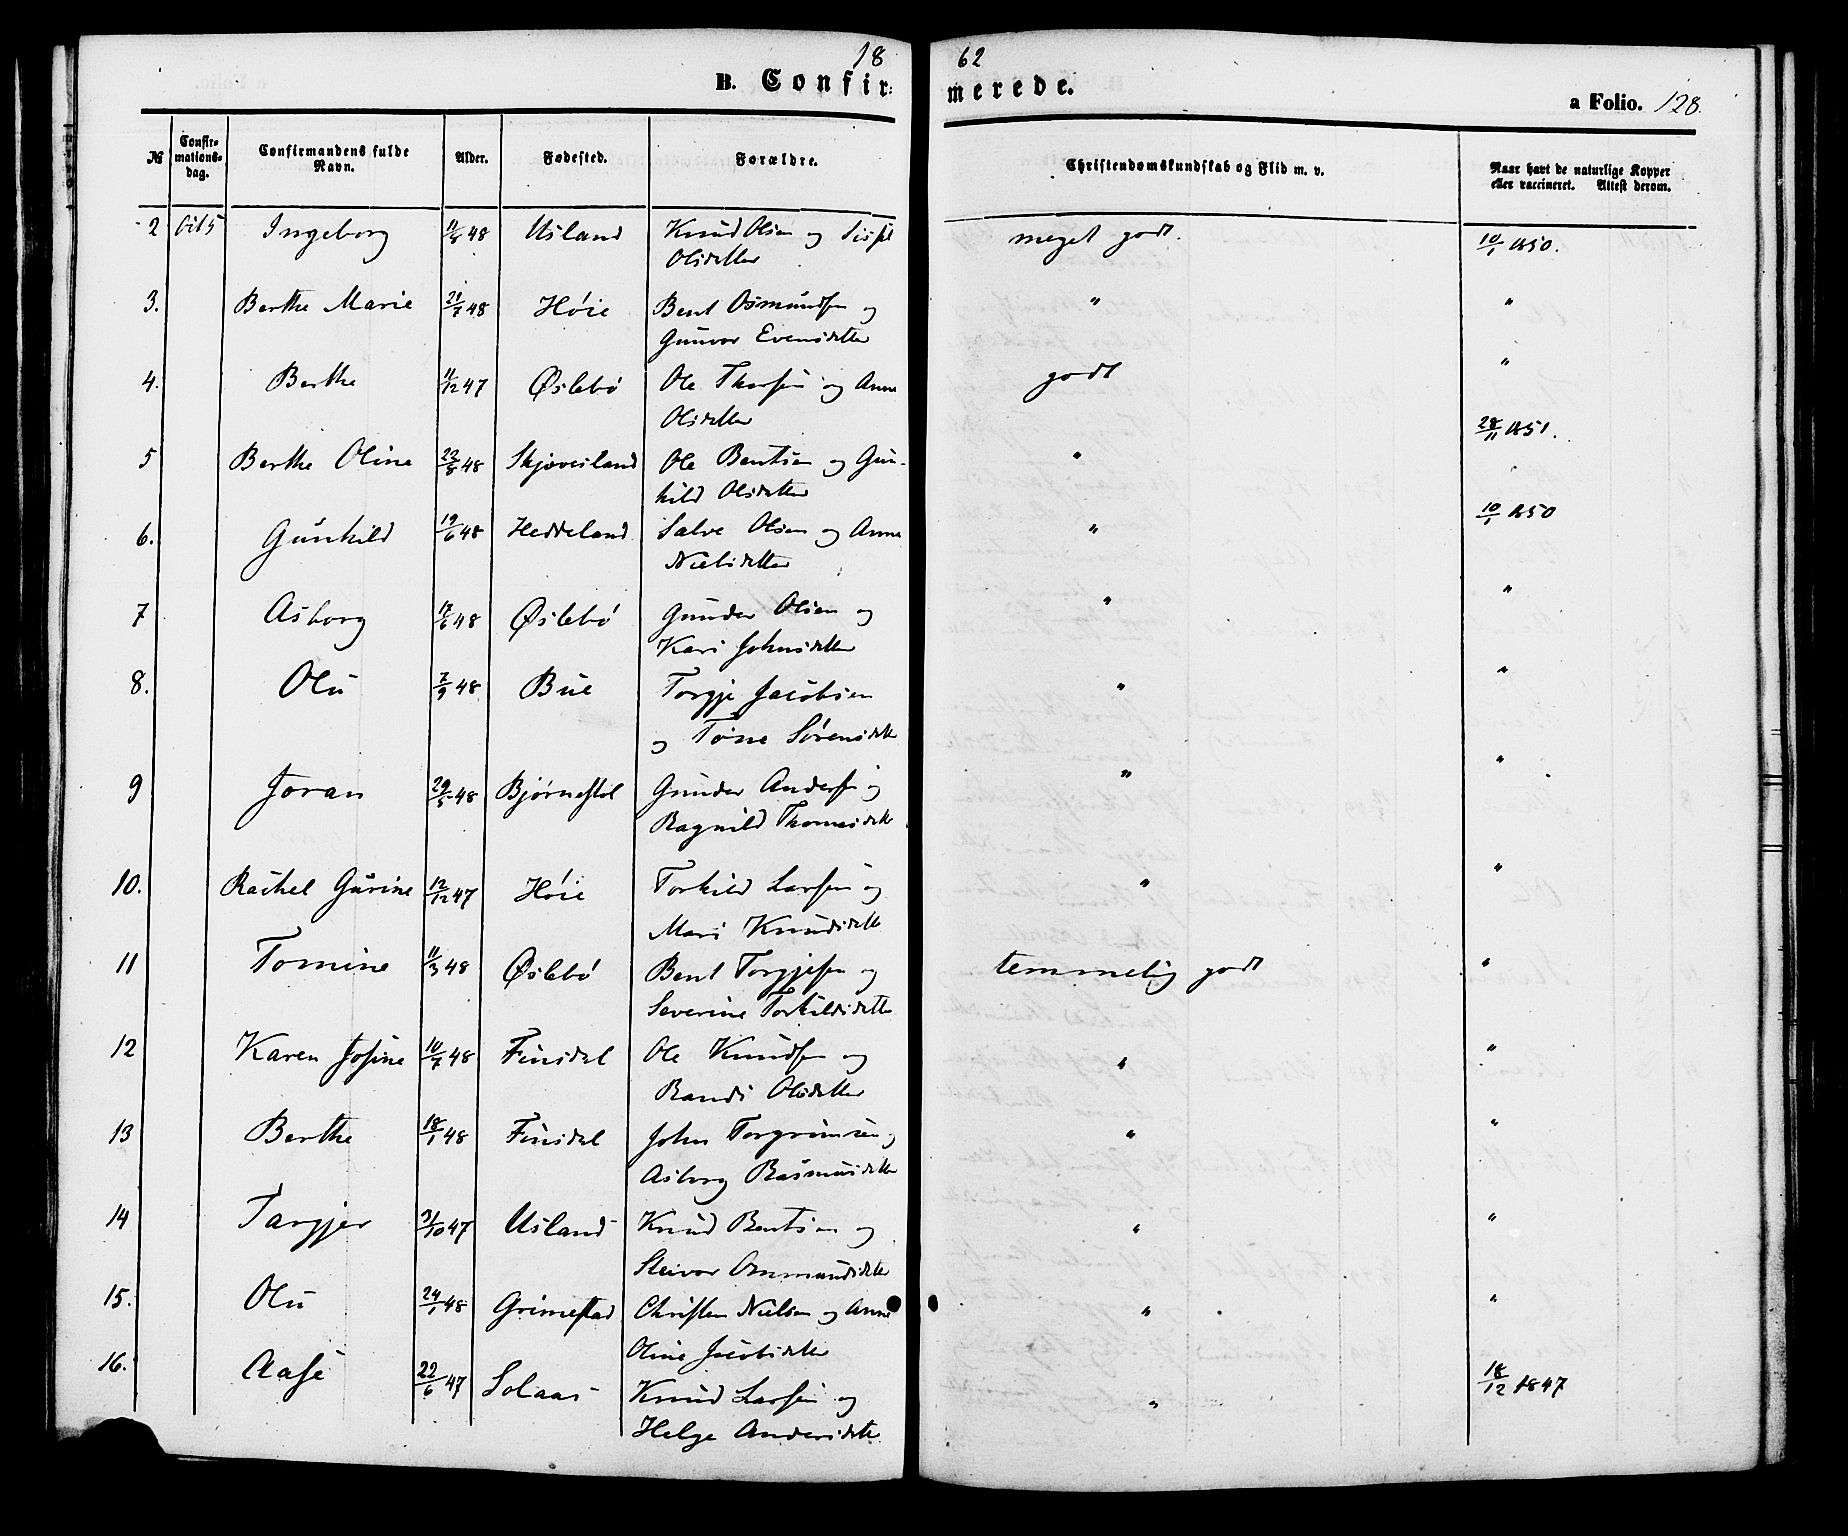 18 62
B. Confirmerede. a Folio. 128.
№ Confirmationsdag. Confirmandens fulde Navn. Alder. Fødested. Forældre. Christendomskundskab og Flid m. v. Naar havt de naturlige Kopper eller vaccineret. Attest derom.
2 Ingeborg 48 Usland Knud Olsen og meget godt. 10/1 1850.
Olsdatter
3. Berthe Marie 21/7 48 Høie Bent Osmundsen og " "
Gunvor Evensdatter
4. Berthe 11/12 47 Øslebø Ole Thorsen og Anne godt "
Olsdatter
5 Berthe Oline 22/8 48 Skjævesland Ole Bentsen og Gun- " 28/11 1851.
hild Olsdatter
6. Gunhild 19/6 48 Heddeland Salve Olsen og Anne " 10/1 1850
Nielsdatter
7 Asborg 17/6 48 Øslebø Gunder Olsen og " "
Kari Johnsdatter
8. Olu 7/9 48 Bue Torgje Jacobsen " "
og Tone Sørensdatt
9 Joran 29/5 48 Bjørnestøl Gunder Andersen og " "
Ragnild Thomesdatt
10. Rachel Gurine 12/12 47 Høie Torkild Larsen og " "
Mari Knudsdatt
11 Tomine 11/3 48 Øslebø Bent Torgjesen og temmelig godt "
Severine Torkildsdatt
12 Karen Josine 10/7 48 Finsdal Ole Knudsen og " "
Randi Olsdatter
13 Berthe 18/1 48 Finsdal John Torgrimsen og " "
Asborg Rasmusdatter
14 Targjer 31/10 47 Usland Knud Bentsen og " "
Steivor Ommundsdatter
15. Olu 24/1 48 Grimestad Christen Nielsen og Anne " "
Oline Jacobsdatter
16. Aase 22/6 47 Solaas Knud Larsen og " 18/12 1847
Helge Andersdatt